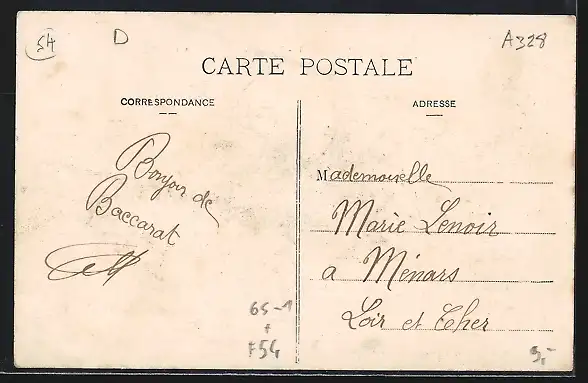 54
D
A328
CARTE POSTALE
CORRESPONDANCE
ADRESSE
Bonjour de
Baccarat
Mademoiselle
Marie Lenoir
a Ménars
Loir et Cher
65-1
+
F54
9,-